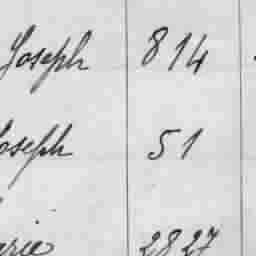 Joseph 814
Joseph 51
2827